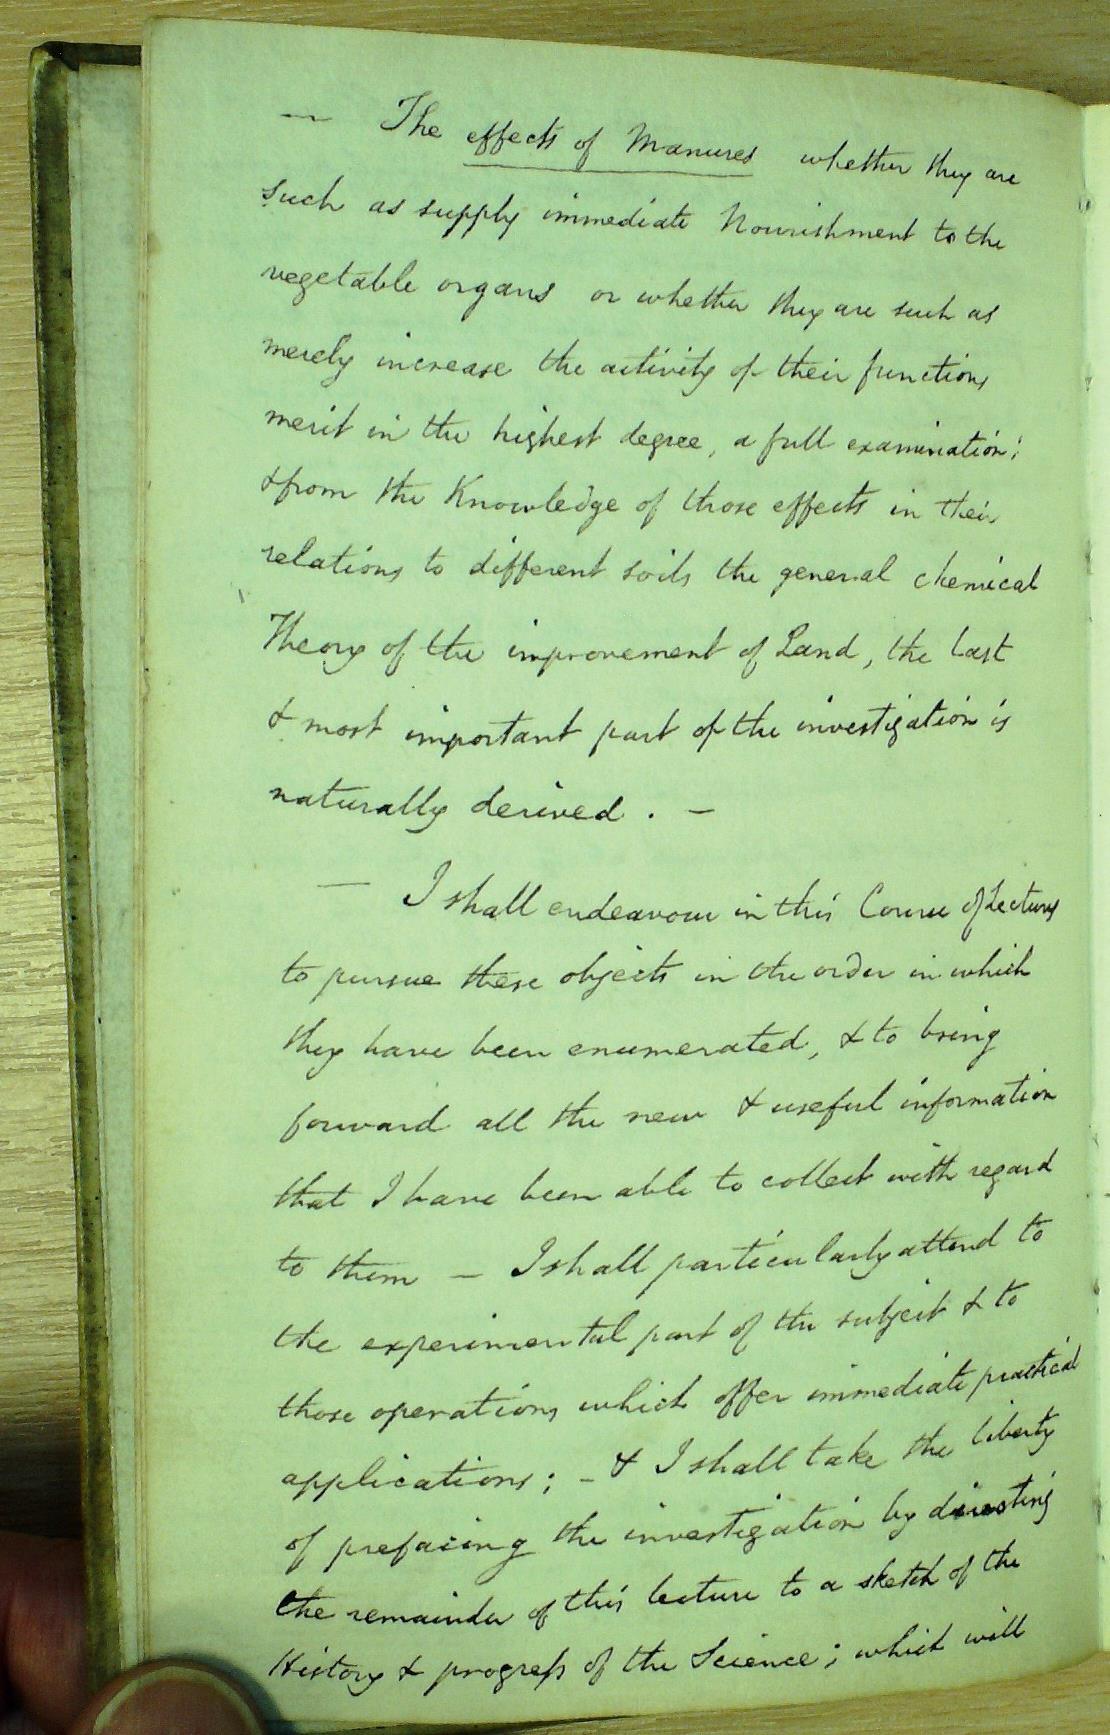 — The effects of Manures whether they are
such as supply immediate Nourishment to the
vegetable organs or whether they are such as
merely increase the activity of their functions
merit in the highest degree, a full examination;
& from the Knowledge of those effects in their
relations to different soils the general chemical
Theory of the improvement of Land, the last
& most important part of the investigation is
naturally derived. —
— I shall endeavour in this Course of Lectures
to pursue these objects in the order in which
they have been enumerated, & to bring
forward all the new & useful information
that I have been able to collect with regard
to them — I shall particularly attend to
the experimental part of the subject & to
those operations which offer immediate practical
applications; – & I shall take the liberty
of prefacing the investigation by directing
the remainder of this lecture to a sketch of the
History & progress of the Science; which will